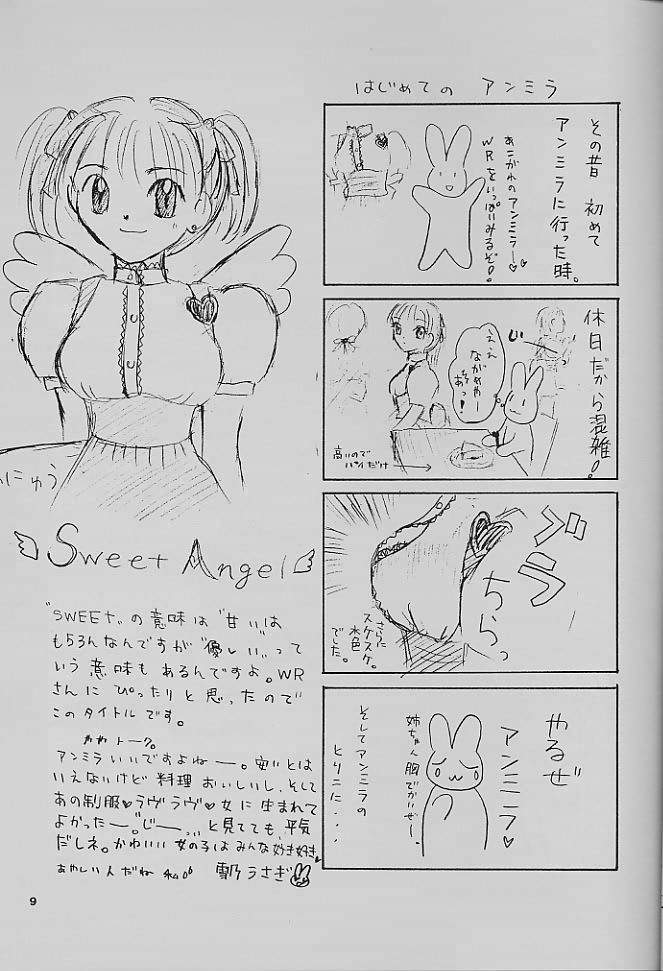 はじめての アンミラ
その昔 初めて
アンミラに行った時。
あこがれのアンミラー♡♡
WRをいっぱいみるぞ!
休日だから混雑!
じー
ええ
ながめやー
あっ!
高いので
パイだけ
ブラ
ちらっ
さらに
スケスケ。
水色
でした。
やるぜ
アンミラ♡
姉ちゃん胸でかいぜー。
そしてアンミラの
とりこに・・・
にゅう
Sweet Angel
"SWEEt"の意味は"甘い"は
もちろんなんですが"優しい"って
いう意味もあるんですよ。WR
さんに ぴったりと思ったので
このタイトルです。
トーク。
アンミラいいですよねー。安いとは
いえないけど 料理 おいしいし、そして
あの制服♡ラヴラヴ♡女に生まれて
よかったー。じー... と見てても平気
だしネ。かわいい女の子はみんな好き好き♥
あやしい人だね 私
雪乃うさぎ
9